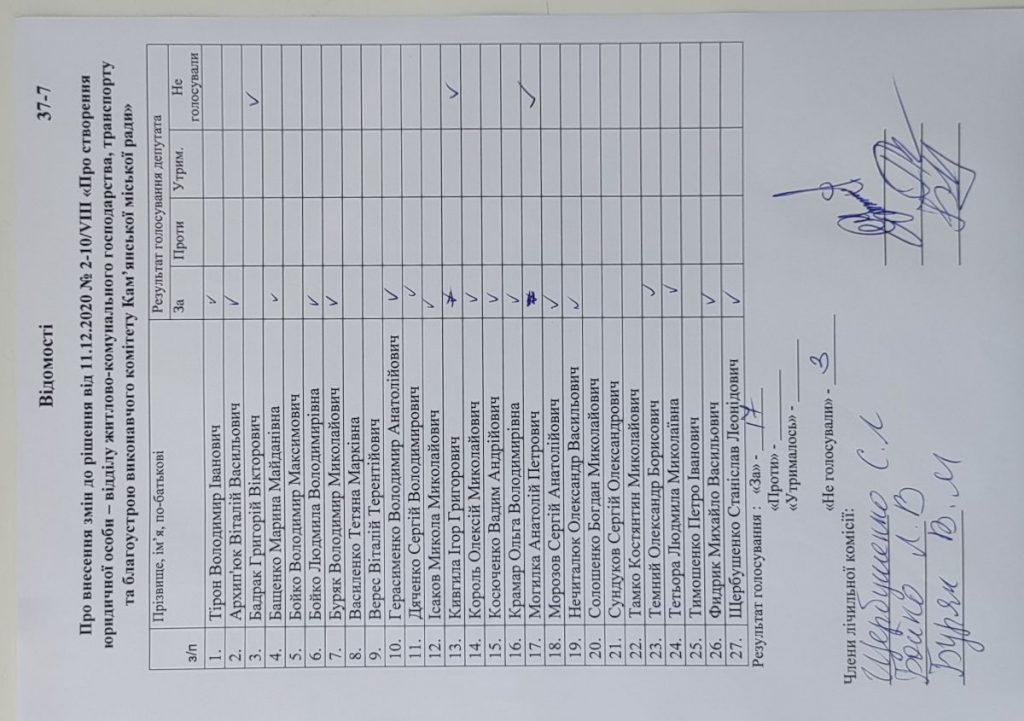 37-7
Відомості
Про внесення змін до рішення від 11.12.2020 № 2-10/VIII «Про створення
юридичної особи – відділу житлово-комунального господарства, транспорту
та благоустрою виконавчого комітету Кам’янської міської ради»
з/п Прізвище, ім’я, по-батькові Результат голосування депутата
За Проти Утрим. Не голосували
1. Тірон Володимир Іванович ✓
2. Архип'юк Віталій Васильович ✓
3. Бадрак Григорій Вікторович ✓
4. Бащенко Марина Майданівна ✓
5. Бойко Володимир Максимович
6. Бойко Людмила Володимирівна ✓
7. Буряк Володимир Миколайович ✓
8. Василенко Тетяна Марківна
9. Верес Віталій Терентійович
10. Герасименко Володимир Анатолійович ✓
11. Дяченко Сергій Володимирович ✓
12. Ісаков Микола Миколайович ✓
13. Кивгила Ігор Григорович ✓
14. Король Олексій Миколайович ✓
15. Косюченко Вадим Андрійович ✓
16. Крамар Ольга Володимирівна ✓
17. Могилка Анатолій Петрович ✓
18. Морозов Сергій Анатолійович ✓
19. Нечиталюк Олександр Васильович ✓
20. Солошенко Богдан Миколайович
21. Сундуков Сергій Олександрович
22. Тамко Костянтин Миколайович
23. Темний Олександр Борисович ✓
24. Тетьора Людмила Миколаївна ✓
25. Тимошенко Петро Іванович
26. Фидрик Михайло Васильович ✓
27. Щербушенко Станіслав Леонідович ✓
Результат голосування : «За» - 17
«Проти» -
«Утрималось» -
«Не голосували» - 3
Члени лічильної комісії:
Щербушенко С.Л
Бойко Л.В
Буряк В.М